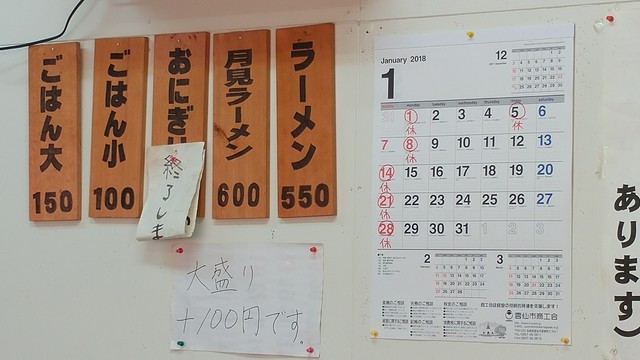 ごはん大
150
ごはん小
100
おにぎ
終了しま
月見ラーメン
600
ラーメン
550
大盛り
+100円です。
January 2018
1
12
monday tuesday wednesday thursday friday saturday
31 1 2 3 4 5 6
休 休
7 8 9 10 11 12 13
休
14 15 16 17 18 19 20
休
21 22 23 24 25 26 27
休
28 29 30 31 1 2 3
休
2
3
雲仙市商工会
あります)